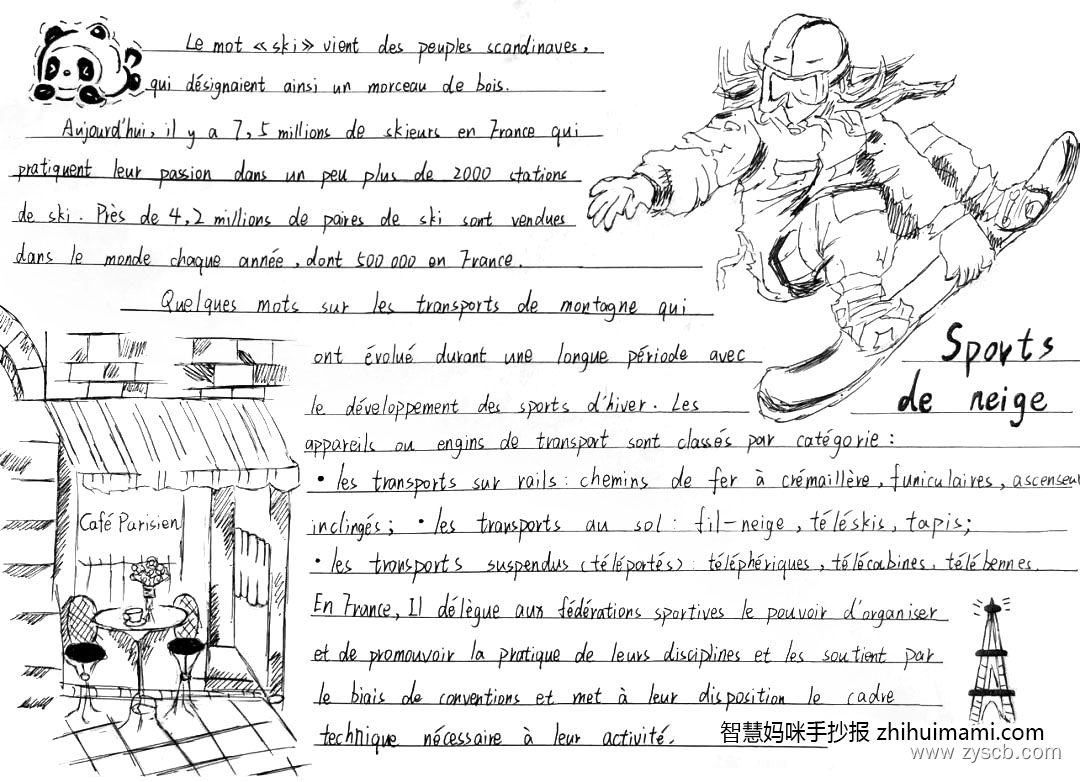 Le mot «ski» vient des peuples scandinaves,
qui désignaient ainsi un morceau de bois.
Aujourd'hui, il y a 7,5 millions de skieurs en France qui
pratiquent leur passion dans un peu plus de 2000 stations
de ski. Près de 4,2 millions de paires de ski sont vendues
dans le monde chaque année, dont 500 000 en France.
Quelques mots sur les transports de montagne qui
ont évolué durant une longue période avec
le développement des sports d'hiver. Les
appareils ou engins de transport sont classés par catégorie :
• les transports sur rails : chemins de fer à crémaillère, funiculaires, ascenseu
inclingés; • les transports au sol : fil-neige, téléskis, tapis;
• les transports suspendus (téléportés) : téléphériques, télécabines, télébennes.
En France, Il délègue aux fédérations sportives le pouvoir d'organiser
et de promouvoir la pratique de leurs disciplines et les soutient par
le biais de conventions et met à leur disposition le cadre
technique nécessaire à leur activité.
Sports
de neige
Café Parisien
智慧妈咪手抄报 zhihuimami.com
www.zyscb.com